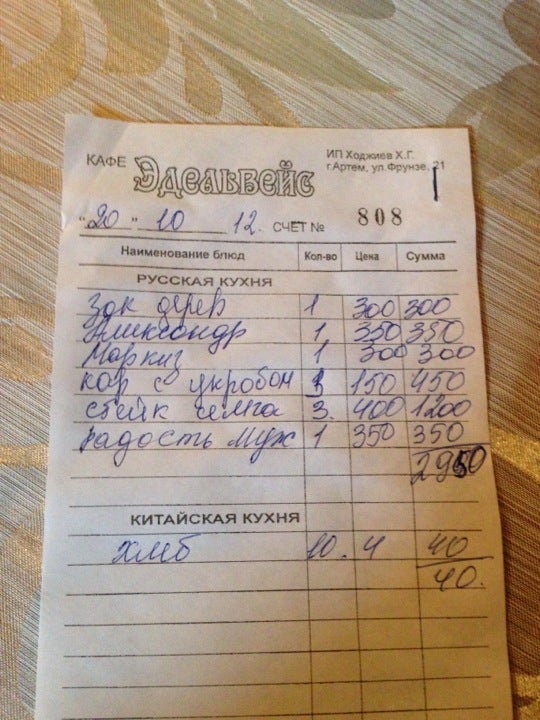 КАФЕ Эдельвейс
ИП Ходжиев Х.Г.
г.Артем, ул.Фрунзе, 21
1
"20" 10 12. СЧЕТ № 808
Наименование блюд Кол-во Цена Сумма
РУССКАЯ КУХНЯ
Зак дерев 1 300 300
Александр 1 350 350
Маркиз 1 300 300
кар с укробом 3 150 450
стейк семга 3. 400 1200
Радость муж 1 350 350
2950
КИТАЙСКАЯ КУХНЯ
хлеб 10. 4 40
40.